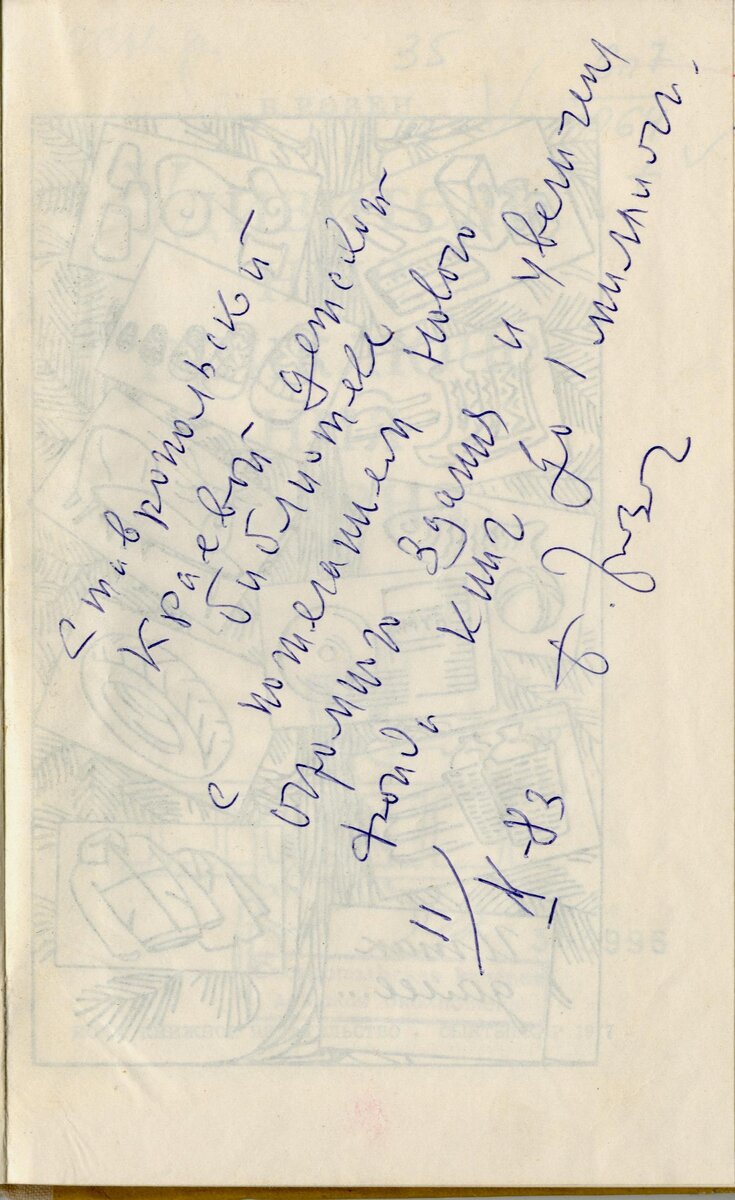 Ставропольский
Краевой детской
библиотеке
с пожеланием нового
огромного здания и увелич.
фонда книг до 1 миллион.
11/II-83